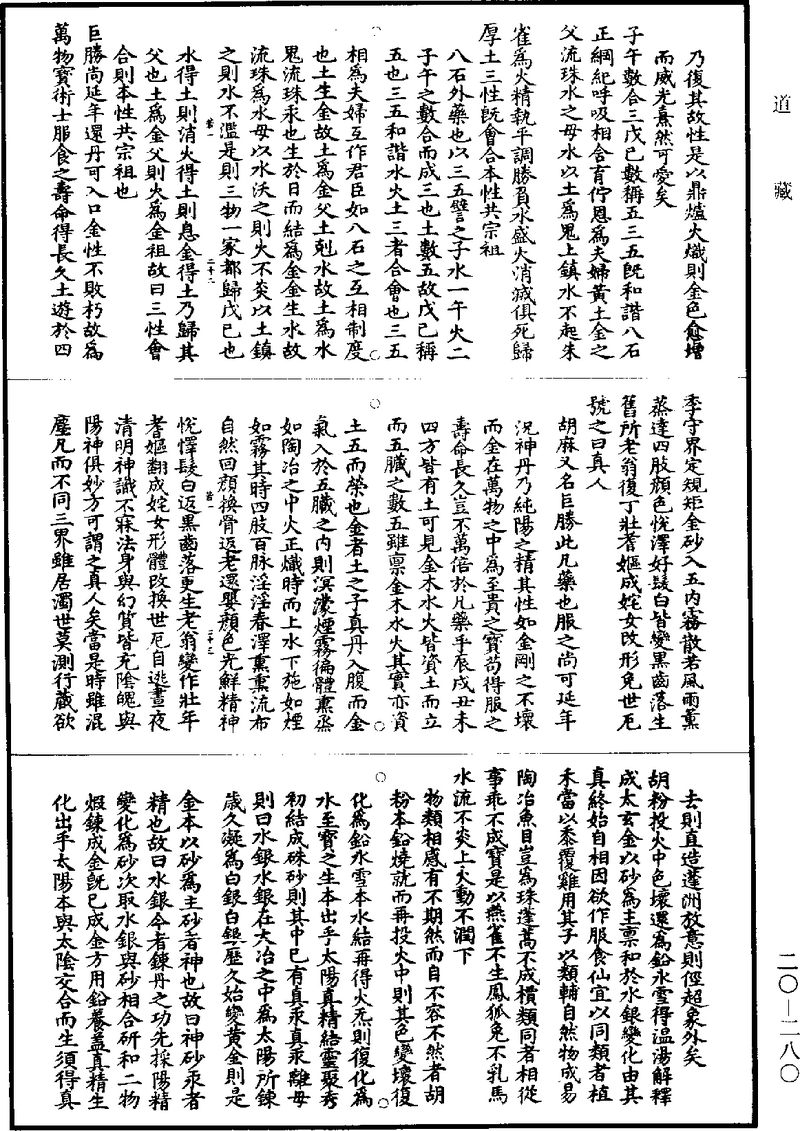 道藏
乃復其故性是以鼎爐火熾則金色愈增
而威光熹然可愛矣
子午數合三戊己數稱五三五既和諧八石
正綱紀呼吸相含育佇思為夫婦黃土金之
父流珠水之母水以土為鬼土鎮水不起朱
雀為火精執平調勝負水盛火消滅俱死歸
厚土三性既會合本性共宗祖
八石外藥也以三五譬之子水一午火二
子午之數合而成三也土數五故戊己稱
五也三五和諧水火土三者合會也三五
相為夫婦互作君臣如八石之互相制度
也土生金故土為金父土剋水故土為水
鬼流珠汞也生於日而結為金金生水故
流珠為水母以水沃之則火不炎以土鎮
之則水不濫是則三物一家都歸戊己也
水得土則消火得土則息金得土乃歸其
父也土為金父則火為金祖故曰三性會
合則本性共宗祖也
巨勝尚延年還丹可入口金性不敗朽故為
萬物寶術士服食之壽命得長久土遊於四
季守界定規矩金砂入五內霧散若風雨薰
蒸達四肢顏色悅澤好髮白皆變黑齒落生
舊所老翁復丁壯耆嫗成姹女改形免世厄
號之曰真人
胡麻又名巨勝此凡藥也服之尚可延年
況神丹乃純陽之精其性如金剛之不壞
而金在萬物之中為至貴之寶苟得服之
壽命長久豈不萬倍於凡藥乎辰戌丑未
四方皆有土可見金木水火皆資土而立
而五臟之數五雖稟金木水火其實亦資
土五而榮也金者土之子真丹入腹而金
氣入於五臟之內則溟濛煙霧徧體熏烝
如陶冶之中火正熾時而上水下施如煙
如霧其時四肢百脉淫淫春澤熏熏流布
自然回顏換骨返老還嬰顏色光鮮精神
悅懌髮白返黑齒落更生老翁變作壯年
耆嫗翻成姹女形體改換世厄自逃晝夜
清明神識不寐法身與幻質皆充陰魄與
陽神俱妙方可謂之真人矣當是時雖混
塵凡而不同三界雖居濁世莫測行藏欲
去則直造蓬洲放意則徑超象外矣
胡粉投火中色壞還為鉛冰雪得溫湯解釋
成太玄金以砂為主稟和於水銀變化由其
真終始自相因欲作服食仙宜以同類者植
禾當以黍覆雞用其子以類輔自然物成易
陶冶魚目豈為珠蓬蒿不成檟類同者相從
事乖不成寶是以燕雀不生鳳狐兔不乳馬
水流不炎上火動不潤下
物類相感有不期然而自不容不然者胡
粉本鉛燒就而再投火中則其色變壞復
化為鉛冰雪本水結再得火炁則復化為
水至寶之生本出乎太陽真精結靈聚秀
初結成硃砂則其中已有真汞真汞離母
則曰水銀水銀在大冶之中為太陽所鍊
歲久凝為白銀白銀歷久始變黃金則是
金本以砂為主砂者神也故曰神砂汞者
精也故曰水銀今者鍊丹之功先採陽精
變化為砂次取水銀與砂相合研和二物
煅鍊成金既已成金方用鉛養蓋真精生
化出乎太陽本與太陰交合而生須得真
二〇—二八〇